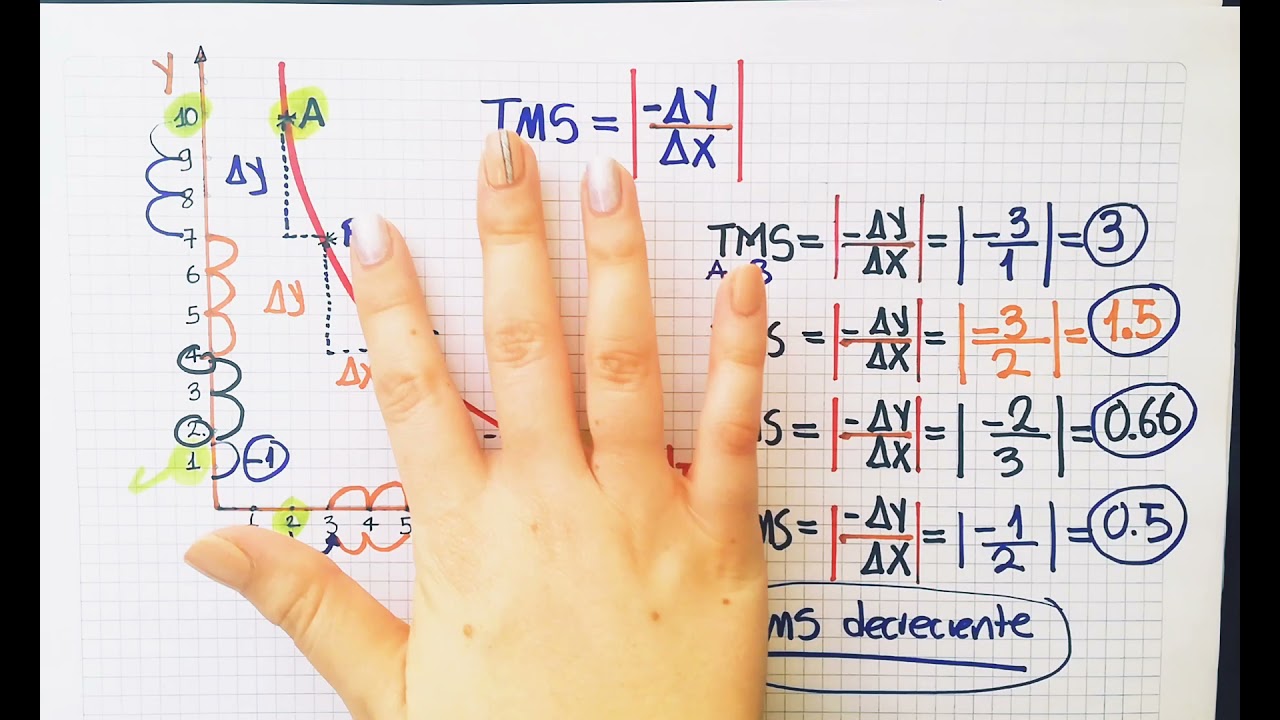 Y
10
A
9
Δy
8
7
6
Δy
5
4
Δx
3
2.
1
-1
1 2 3 4 5
TMS = |-ΔY/ΔX|
TMS = |-ΔY/ΔX| = |-3/1| = 3
A B
S = |-ΔY/ΔX| = |-3/2| = 1.5
S = |-ΔY/ΔX| = |-2/3| = 0.66
MS = |-ΔY/ΔX| = |-1/2| = 0.5
MS decreciente